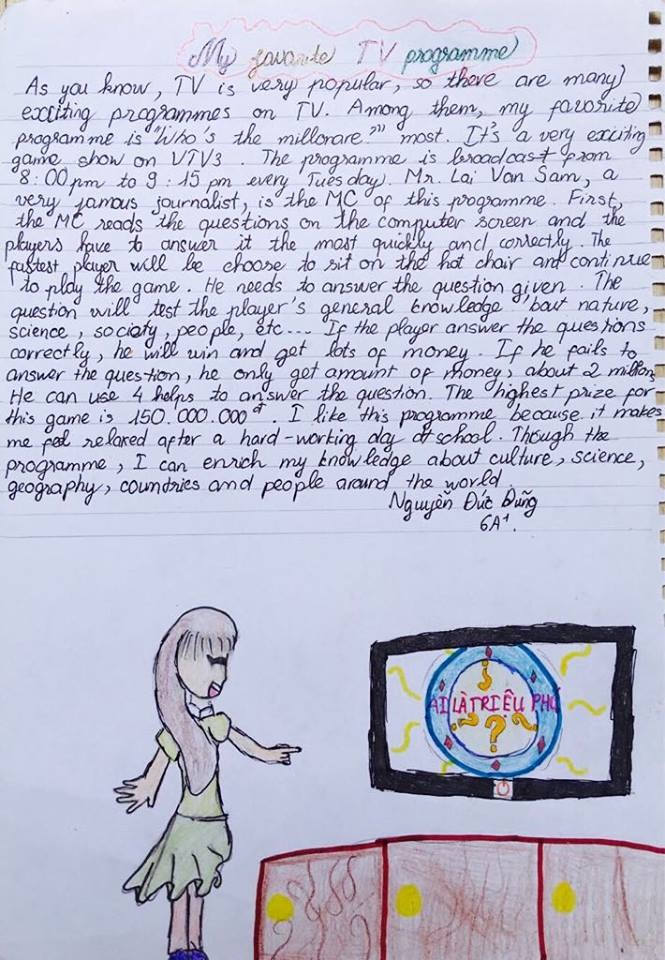 My favorite TV programme
As you know, TV is very popular, so there are many
exciting programmes on TV. Among them, my favorite
programme is "Who's the millorare?" most. It's a very exciting
game show on VTV3. The programme is broadcast from
8:00 pm to 9:15 pm every Tuesday. Mr. Lai Van Sam, a
very famous journalist, is the MC of this programme. First,
the MC reads the questions on the computer screen and the
players have to answer it the most quickly and correctly. The
fastest player will be choose to sit on the hot chair and continue
to play the game. He needs to answer the question given. The
question will test the player's general knowledge 'bout nature,
science, society, people, etc... If the player answer the questions
correctly, he will win and get lots of money. If he fails to
answer the question, he only get amount of money, about 2 millons
He can use 4 helps to answer the question. The highest prize for
this game is 150.000.000đ. I like this programme because it makes
me feel relaxed after a hard-working day at school. Though the
programme, I can enrich my knowledge about culture, science,
geography, coundries and people around the world.
Nguyễn Đức Dũng
6A1.
AI LÀ TRIỆU PHÚ
?